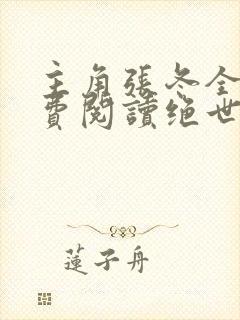 主角張冬全
費閱讀绝世
蓮子舟